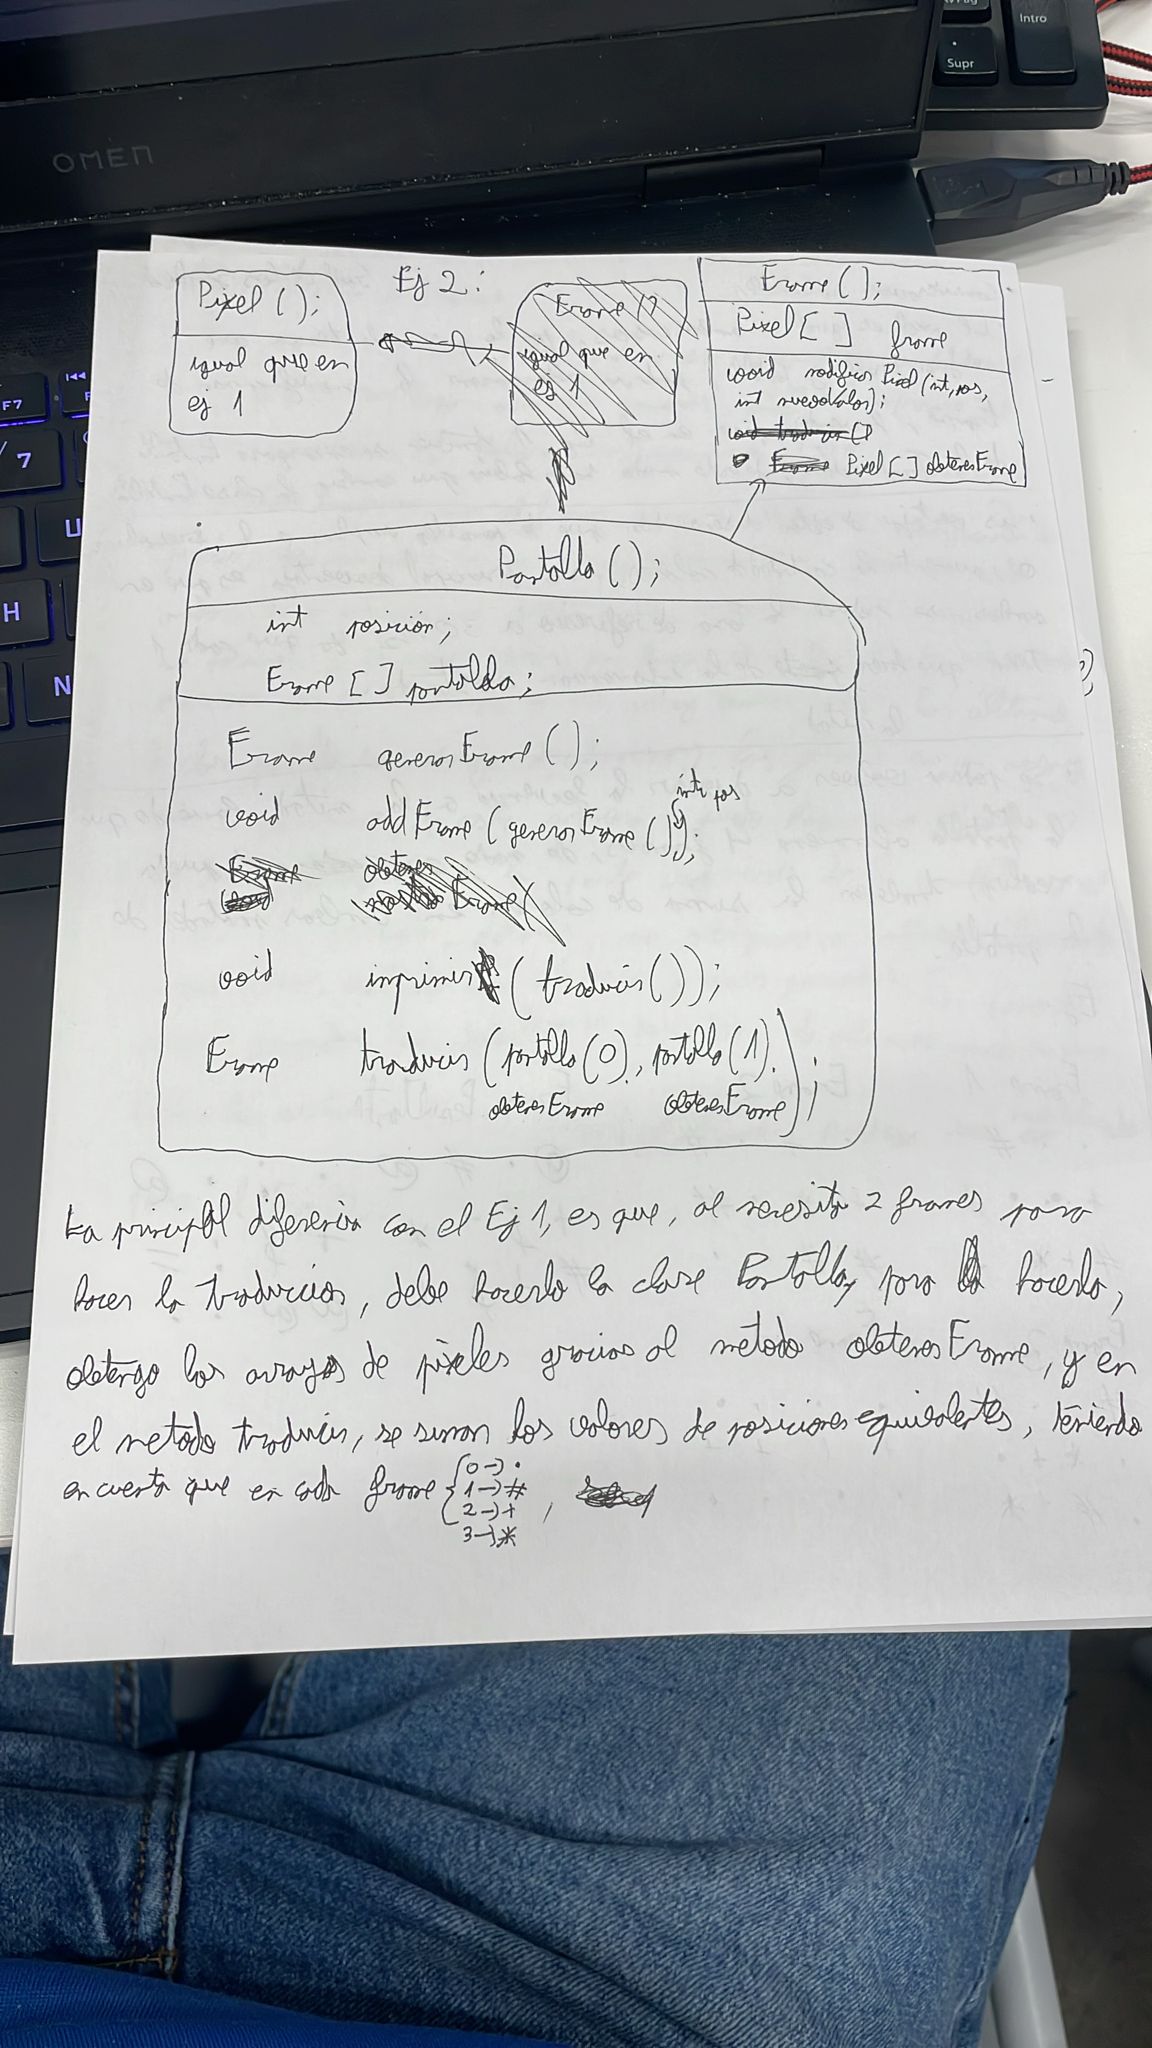 Intro
Supr
OMEN
F7
7
H
N
Ej 2:
Pixel ();
igual que en
ej 1
Frame ()
igual que en
ej 1
Frame ();
Pixel [ ] frame
void modificar Pixel (int pos,
int nuevoValor);
void traducir ()
Frame Pixel [ ] obtenerFrame
Pantalla ();
int posición;
Frame [ ] pantalla;
Frame generarFrame ();
int pos
void addFrame (generarFrame ());
Frame obtener
void Frame
void imprimir (traducir ());
Frame traducir (pantalla(0)., pantalla(1).);
obtenerFrame obtenerFrame
La principal diferencia con el Ej 1, es que, al necesitar 2 frames para
hacer la traducción, debe hacerlo la clase Pantalla, para hacerlo,
obtengo los arrays de píxeles gracias al metodo obtenerFrame, y en
el metodo traducir, se suman los valores de posiciones equivalentes, teniendo
en cuenta que en cada frame { 0→.
1→#
2→+
3→*